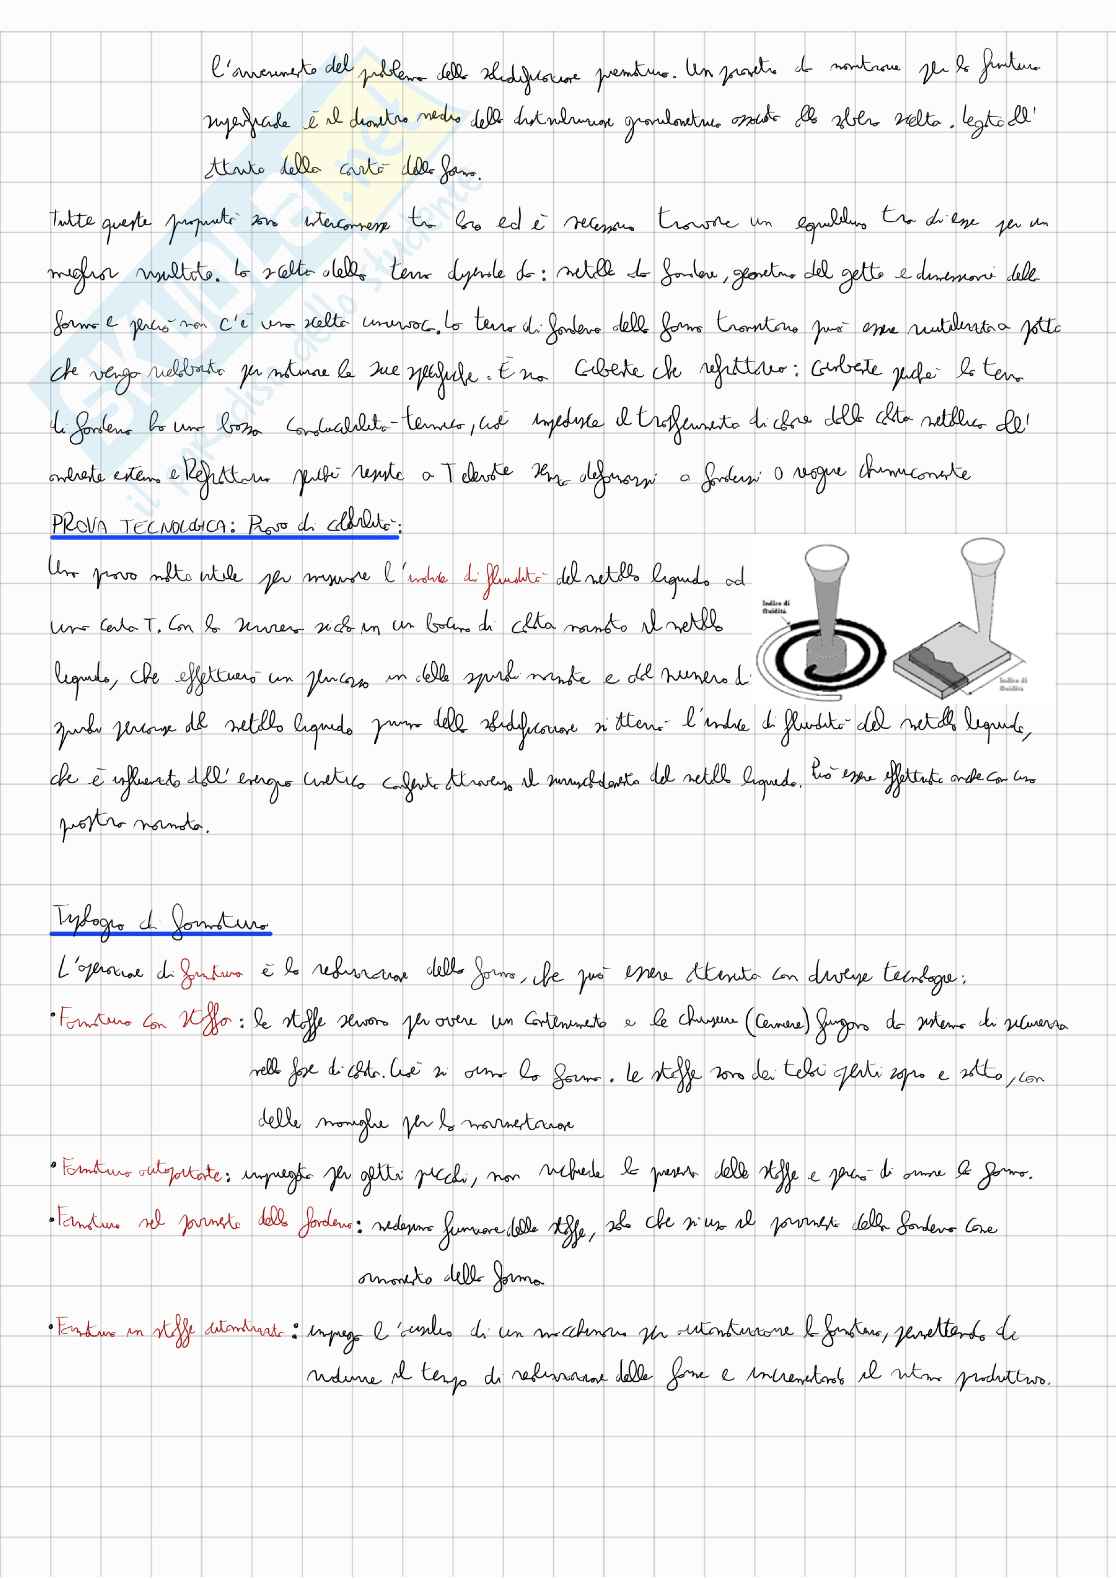 L'avvenimento del problema della solidificazione prematura. Un parametro da monitorare per la finitura
superficiale è il diametro medio della distribuzione granulometrica associata alla sabbia scelta. Legata all'
attrito della carta della forma.
Tutte queste proprietà sono interconnesse tra loro ed è necessario trovare un equilibrio tra di esse per un
miglior risultato. La scelta della terra dipende da: metallo da fondere, geometria del getto e dimensioni della
forma e perciò non c'è una scelta univoca. La terra di fonderia della forma transitoria può essere riutilizzata a patto
che venga rielaborata per maturare le sue specifiche. È sia Coibente che refrattaria: Coibente perché la terra
di fonderia ha una bassa conducibilità termica, cioè impedisce il trasferimento di calore dalla colata metallica all'
ambiente esterno e Refrattaria perché resiste a T elevate senza deformarsi o fondersi o reagire chimicamente
PROVA TECNOLOGICA: Prova di colabilità:
Una prova molto utile per misurare l'indice di fluidità del metallo liquido ad
una certa T. Con la si cola in un bacino di colata normato il metallo
liquido, che effettuerà un percorso in delle spirali normate e dal numero di
spirali percorse dal metallo liquido prima della solidificazione si otterrà l'indice di fluidità del metallo liquido,
che è influenzato dall'energia cinetica conferita attraverso il surriscaldamento del metallo liquido. Può essere effettuata anche con una
piastra normata.
Indice di
fluidità
Indice di
fluidità
Tipologia di formatura
L'operazione di formatura è la realizzazione della forma, che può essere ottenuta con diverse tecnologie:
• Formatura con staffa: le staffe servono per avere un contenimento e le chiusure (cerniere) fungono da sistema di sicurezza
nella fase di colata. Cioè si arma la forma. Le staffe sono dei telai aperti sopra e sotto, con
delle maniglie per la movimentazione
• Formatura autoportante: impiegata per getti piccoli, non richiede la presenza delle staffe e perciò di armare la forma.
• Formatura nel pavimento della fonderia: medesima funzione delle staffe, solo che si usa il pavimento della fonderia come
armamento della forma
• Formatura in staffe automatizzata: impiega l'ausilio di un macchinario per automatizzare la formatura, permettendo di
ridurre il tempo di realizzazione delle forme e incrementando il ritmo produttivo.
SKUOLA.net